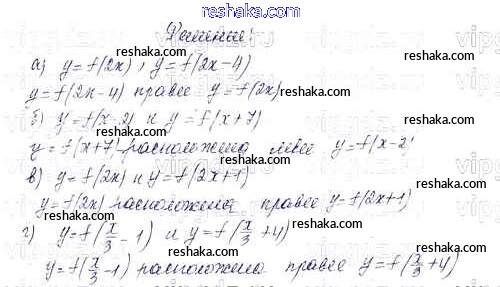 reshaka.com
Решение:
а) y = f(2x), y = f(2x-4) reshaka.com
y = f(2x-4) правее y = f(2x) reshaka.com
б) y = f(x-2) и y = f(x+7)
y = f(x+7) расположена левее y = f(x-2)
в) y = f(2x) и y = f(2x+1) reshaka.com
y = f(2x) расположена правее y = f(2x+1)
г) y = f(x/3 - 1) и y = f(x/3 + 4) reshaka.com
y = f(x/3 - 1) расположена правее y = f(x/3 + 4)
reshaka.com